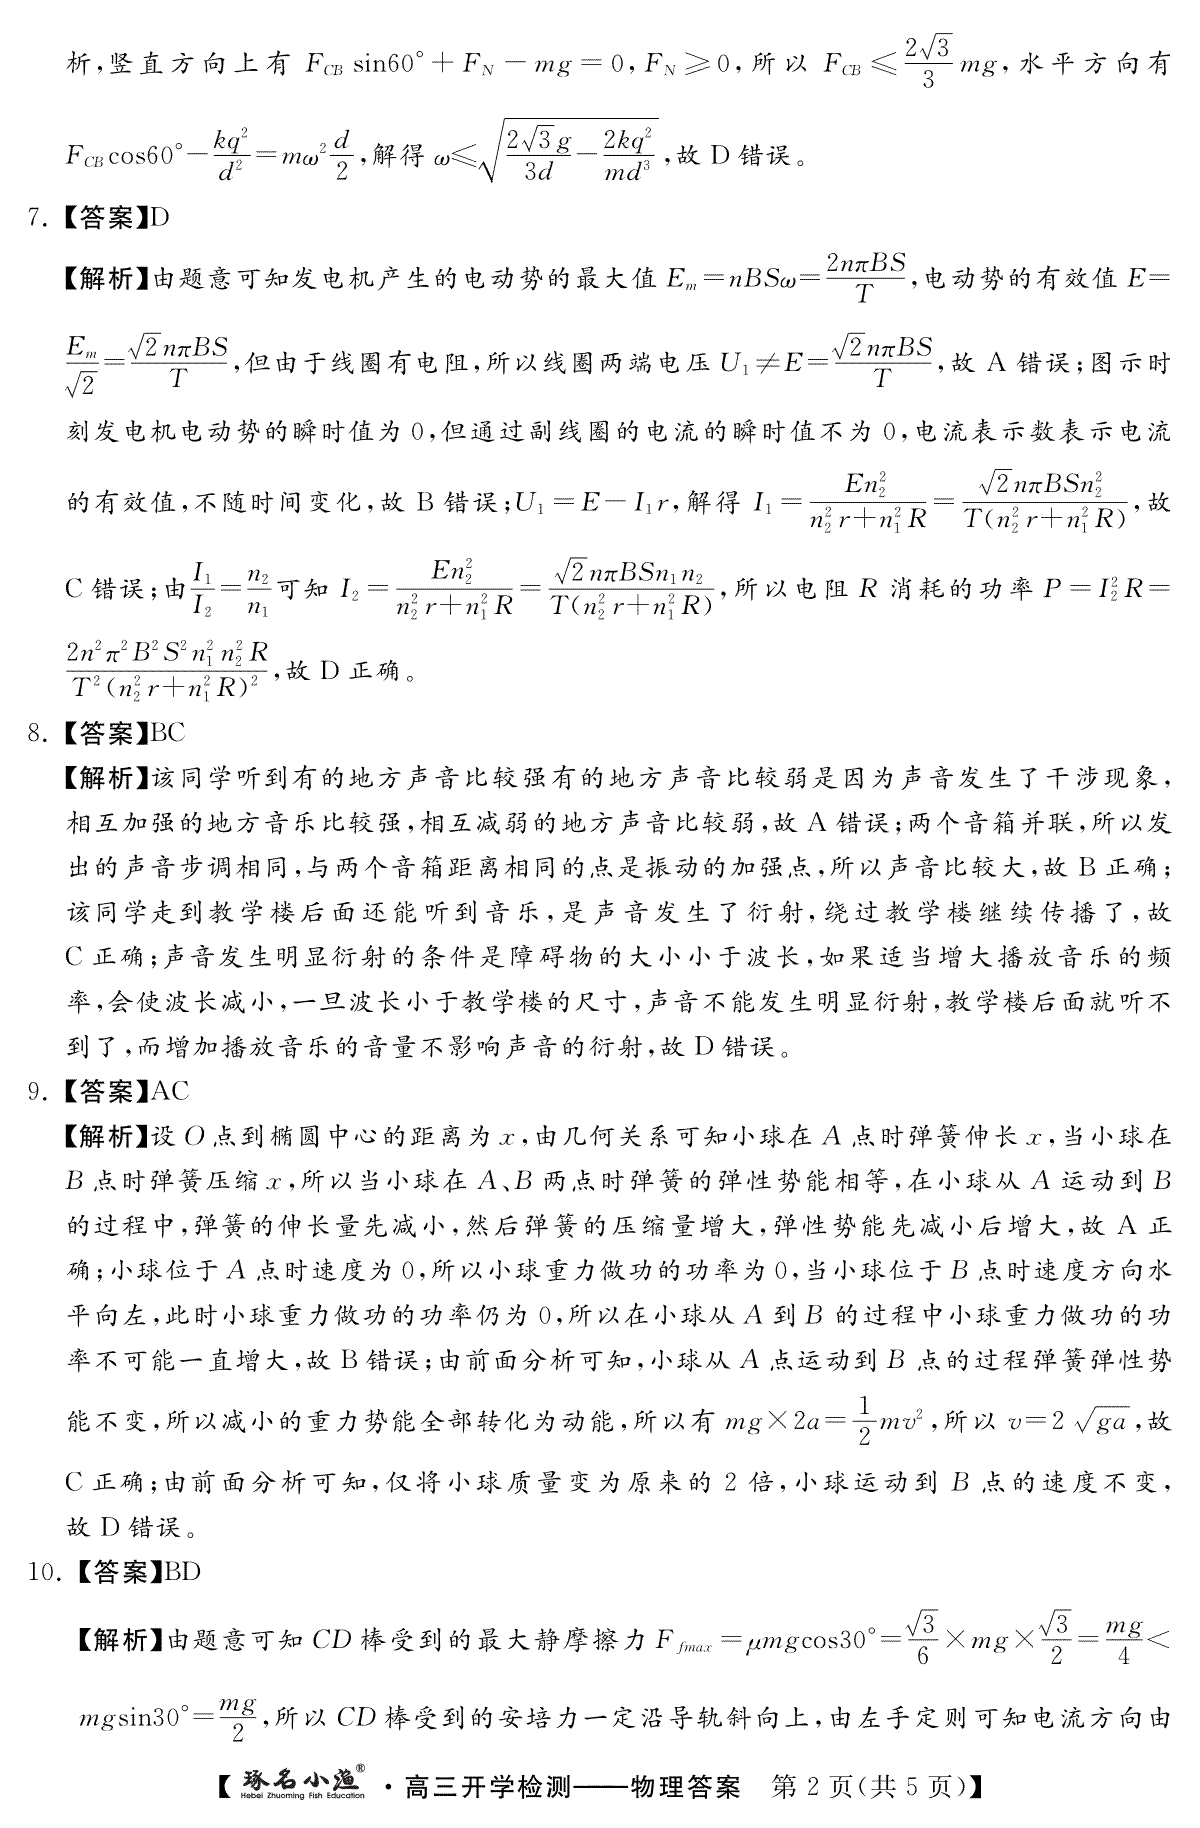 析,竖直方向上有 F_CB sin60°+F_N−mg=0,F_N≥0,所以 F_CB≤(2√3/3)mg,水平方向有
F_CB cos60°−kq²/d²=mω²d/2,解得 ω≤√(2√3g/3d−2kq²/md³),故 D 错误。
7.【答案】D
【解析】由题意可知发电机产生的电动势的最大值 E_m=nBSω=2nπBS/T,电动势的有效值 E=
E_m/√2=√2nπBS/T,但由于线圈有电阻,所以线圈两端电压 U₁≠E=√2nπBS/T,故 A 错误;图示时
刻发电机电动势的瞬时值为 0,但通过副线圈的电流的瞬时值不为 0,电流表示数表示电流
的有效值,不随时间变化,故 B 错误;U₁=E−I₁r,解得 I₁=En₂²/(n₂²r+n₁²R)=√2nπBSn₂²/T(n₂²r+n₁²R),故
C 错误;由 I₁/I₂=n₂/n₁ 可知 I₂=En₂²/(n₂²r+n₁²R)=√2nπBSn₁n₂/T(n₂²r+n₁²R),所以电阻 R 消耗的功率 P=I₂²R=
2n²π²B²S²n₁²n₂²R/T²(n₂²r+n₁²R)²,故 D 正确。
8.【答案】BC
【解析】该同学听到有的地方声音比较强有的地方声音比较弱是因为声音发生了干涉现象,
相互加强的地方音乐比较强,相互减弱的地方声音比较弱,故 A 错误;两个音箱并联,所以发
出的声音步调相同,与两个音箱距离相同的点是振动的加强点,所以声音比较大,故 B 正确;
该同学走到教学楼后面还能听到音乐,是声音发生了衍射,绕过教学楼继续传播了,故
C 正确;声音发生明显衍射的条件是障碍物的大小小于波长,如果适当增大播放音乐的频
率,会使波长减小,一旦波长小于教学楼的尺寸,声音不能发生明显衍射,教学楼后面就听不
到了,而增加播放音乐的音量不影响声音的衍射,故 D 错误。
9.【答案】AC
【解析】设 O 点到椭圆中心的距离为 x,由几何关系可知小球在 A 点时弹簧伸长 x,当小球在
B 点时弹簧压缩 x,所以当小球在 A、B 两点时弹簧的弹性势能相等,在小球从 A 运动到 B
的过程中,弹簧的伸长量先减小,然后弹簧的压缩量增大,弹性势能先减小后增大,故 A 正
确;小球位于 A 点时速度为 0,所以小球重力做功的功率为 0,当小球位于 B 点时速度方向水
平向左,此时小球重力做功的功率仍为 0,所以在小球从 A 到 B 的过程中小球重力做功的功
率不可能一直增大,故 B 错误;由前面分析可知,小球从 A 点运动到 B 点的过程弹簧弹性势
能不变,所以减小的重力势能全部转化为动能,所以有 mg×2a=½mv²,所以 v=2√ga,故
C 正确;由前面分析可知,仅将小球质量变为原来的 2 倍,小球运动到 B 点的速度不变,
故 D 错误。
10.【答案】BD
【解析】由题意可知 CD 棒受到的最大静摩擦力 F_fmax=μmgcos30°=√3/6×mg×√3/2=mg/4<
mgsin30°=mg/2,所以 CD 棒受到的安培力一定沿导轨斜向上,由左手定则可知电流方向由
【琢名小渔® Hebei Zhuoming Fish Education ·高三开学检测——物理答案 第 2 页(共 5 页)】